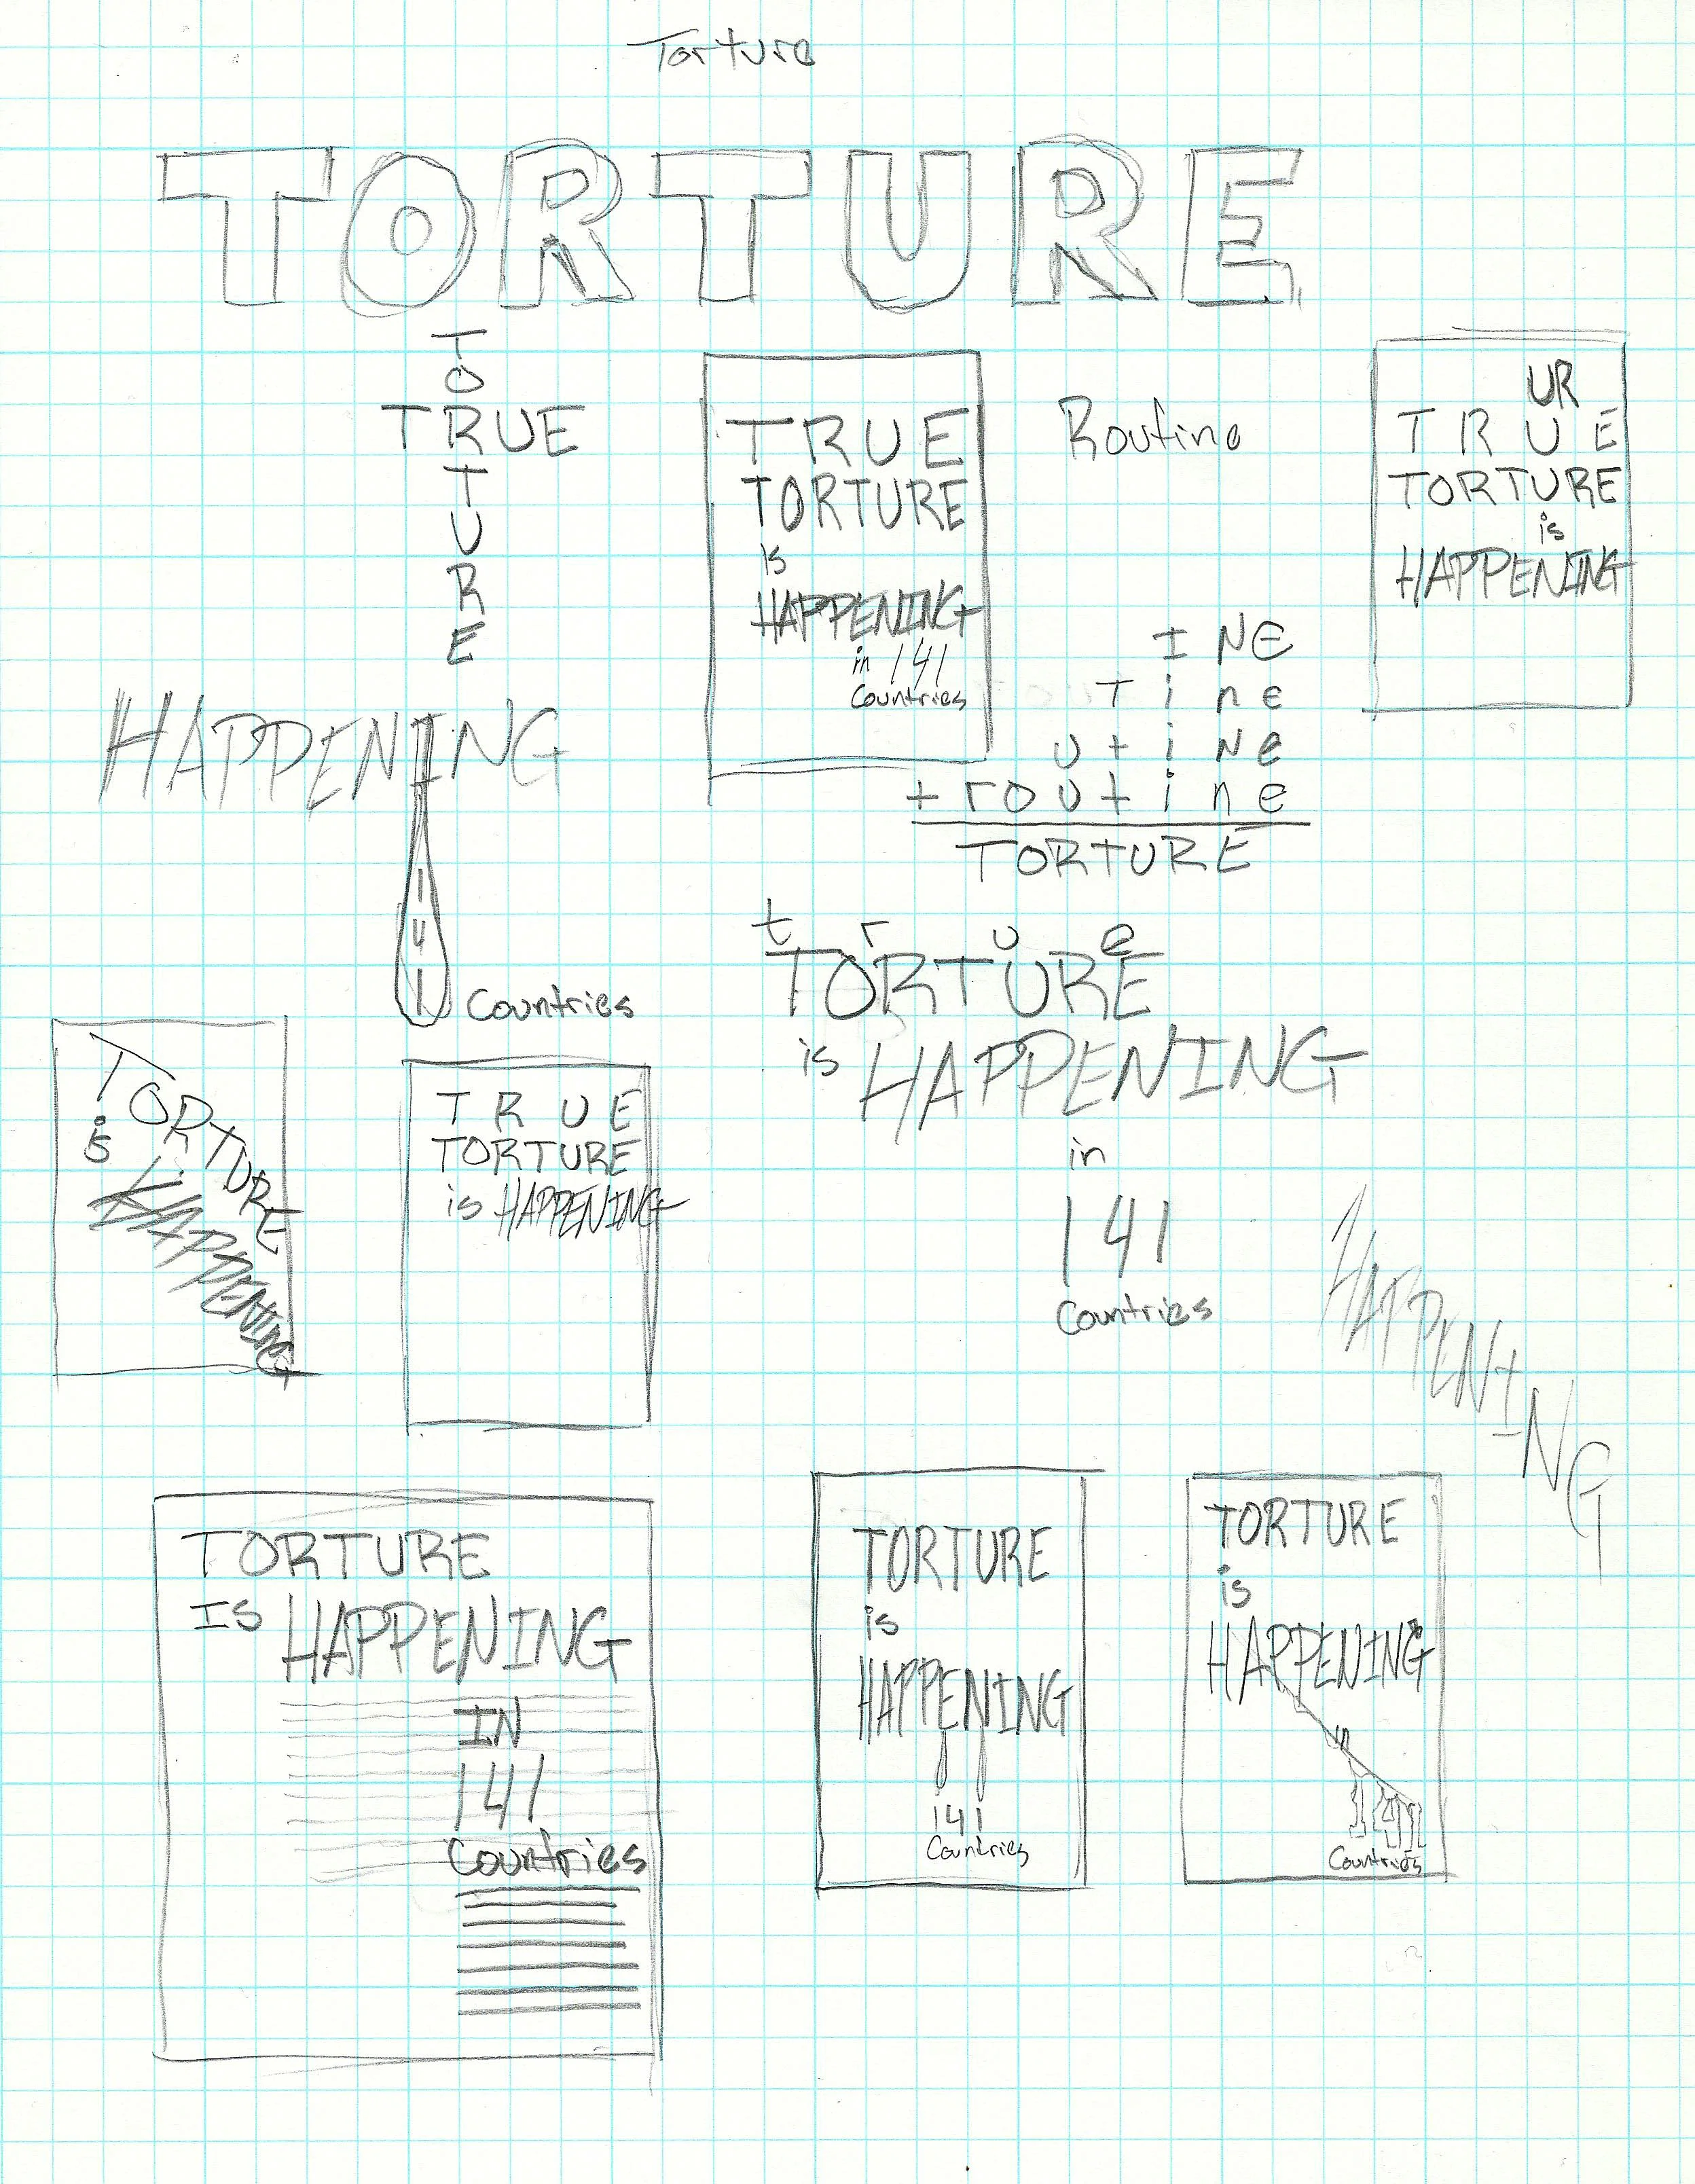 Torture
TORTURE
T
O
TRUE
T
U
R
E
TRUE
TORTURE
is
HAPPENING
in 141
Countries
Routine
UR
TRUE
TORTURE
is
HAPPENING
INE
Tine
utiNe
+routine
TORTURE
HAPPENING
141
Countries
true
TORTURE
is HAPPENING
in
141
Countries
TORTURE
is
HAPPENING
TRUE
TORTURE
is HAPPENING
HAPPENING
TORTURE
IS HAPPENING
IN
141
Countries
TORTURE
is
HAPPENING
141
Countries
TORTURE
is
HAPPENING
in
141
Countries